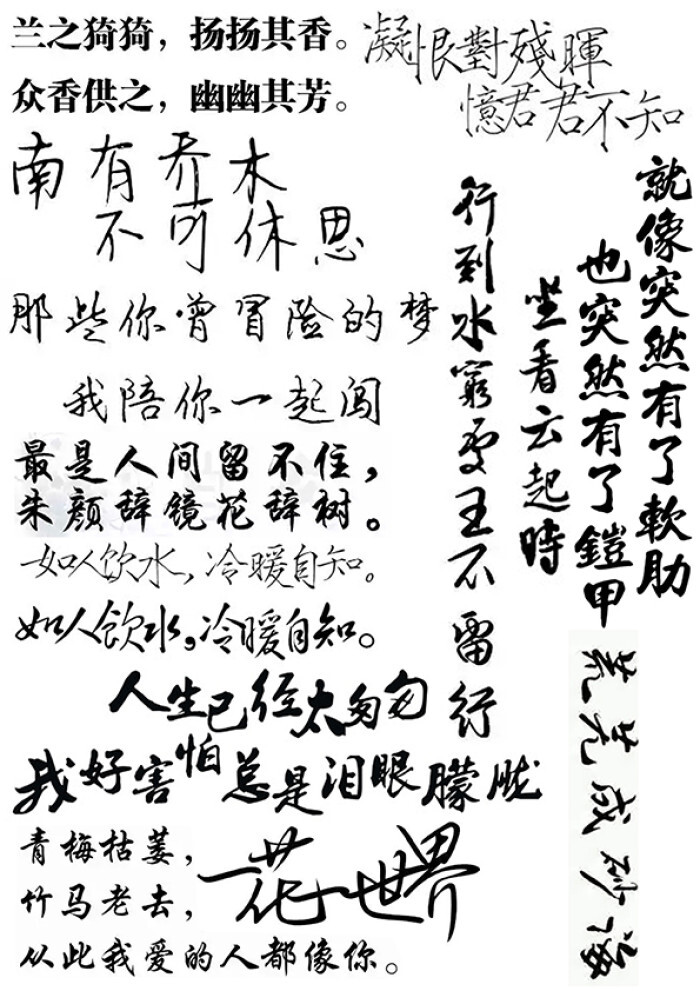 兰之猗猗，扬扬其香。
众香供之，幽幽其芳。
凝恨對殘暉
憶君君不知
南有乔木
不可休思
那些你曾冒险的梦
我陪你一起闯
最是人间留不住，
朱颜辞镜花辞树。
如人饮水，冷暖自知。
如人饮水，冷暖自知。
人生已经太匆匆
我好害怕总是泪眼朦胧
青梅枯萎，
竹马老去，
从此我爱的人都像你。
一花一世界
就像突然有了軟肋
也突然有了鎧甲
行到水窮
坐看云起時
王不留行
成砂